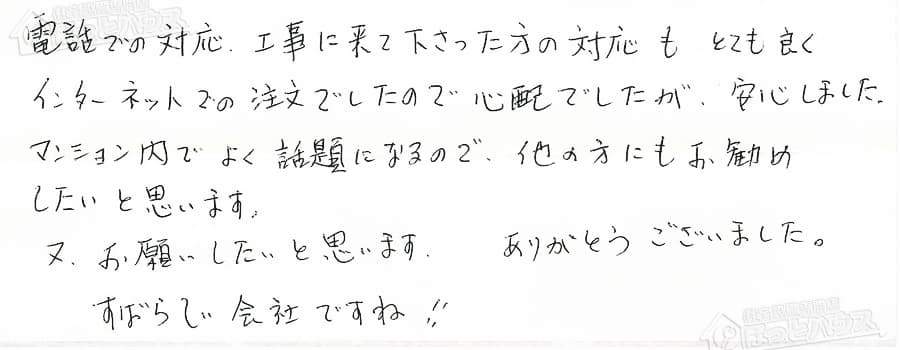 電話での対応、工事に来て下さった方の対応も とても良く
インターネットでの注文でしたので心配でしたが、安心しました。
マンション内でよく話題になるので、他の方にもお勧め
したいと思います。
又、お願いしたいと思います. ありがとうございました。
すばらしい会社ですね!!
ほっとハウス